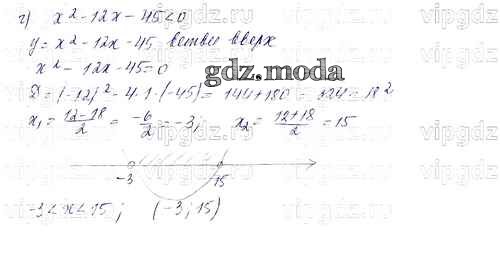 г) x² - 12x - 45 < 0
y = x² - 12x - 45 ветви вверх
x² - 12x - 45 = 0
D = (-12)² - 4·1·(-45) = 144 + 180 = 324 = 18²
x₁ = (12-18)/2 = -6/2 = -3; x₂ = (12+18)/2 = 15
-3 15
-3 < x < 15; (-3; 15)
gdz.moda
vipgdz.ru